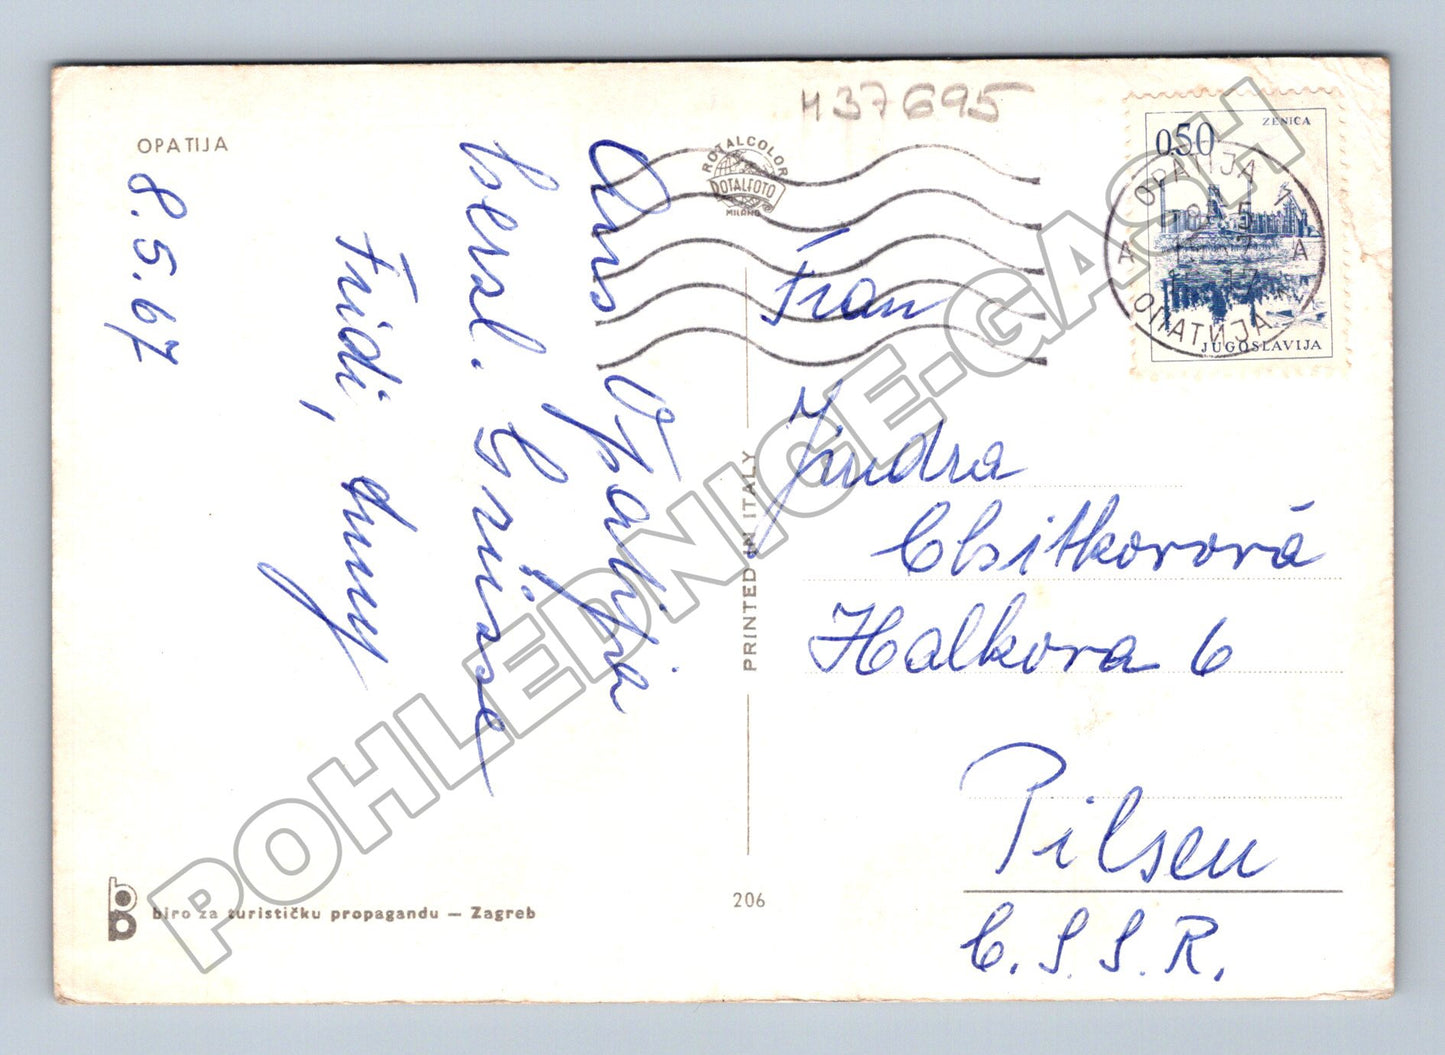 OPATIJA
8.5.67
Aus Opatija
herzl. Grüsse
Fridi,
H37695
ROTALCOLOR
ROTALFOTO
MILANO
0.50
ZENICA
JUGOSLAVIJA
OPATIJA 1
A A
ОПАТИЈА
Frau
Jindra
Halkova 6
Pilsen
Č.S.S.R.
PRINTED IN ITALY
biro za turističku propagandu — Zagreb
206
POHLEDNICE-GASH